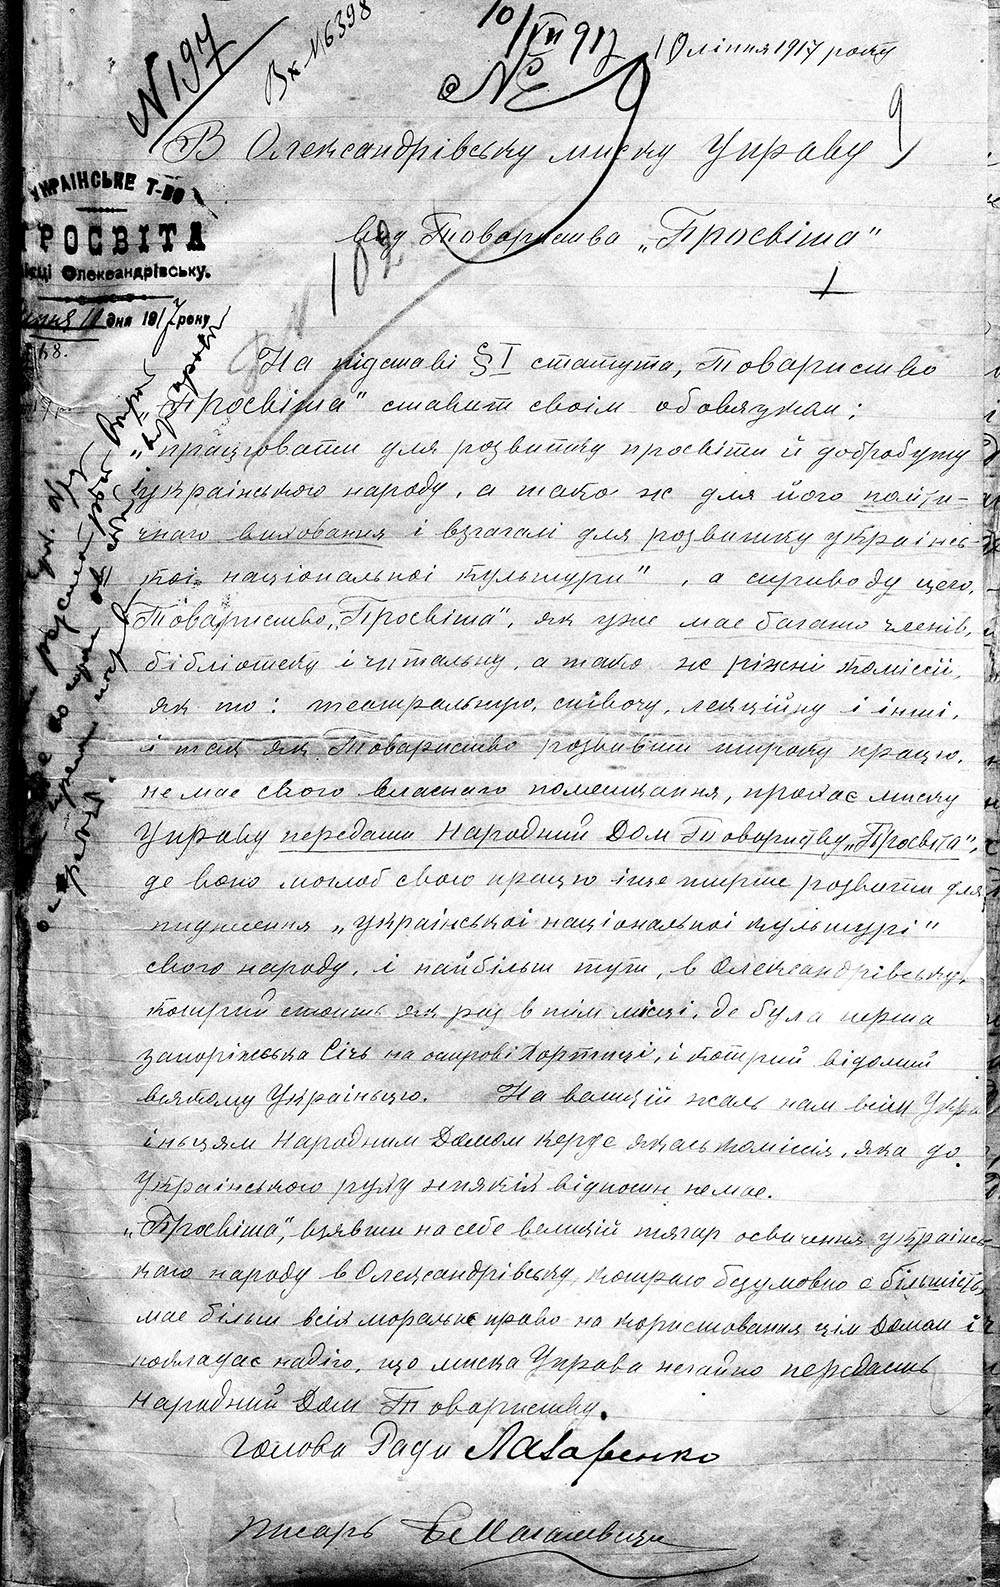 N 197
Вх N 6398
10/VII 917
10 ліпня 1917 року
9
В Олександрівську миску Управу
від Товариства „Просвіта"
УКРАІНСЬКЕ Т-ВО
ПРОСВІТА
місці Олександрівську.
11 дня 1917 року
На підставі § I статута, Товариство
„Просвіта" ставит своім обовязкам;
„працювати для розвитку просвіти й добробуту
украінського народу, а тако ж для його політи-
чного виховання і взагалі для розвитку украінсь-
коі національноі культури", а з приводу цего,
Товариство „Просвіта", як уже має багато членів,
бібліотеку і читальну, а тако ж ріжні комісіі,
як то: театральную, співочу, лекційну і інші,
і так як Товариство розвивши широку працю,
не має свого власнаго помещания, прохає миску
Управу передати Народний Дом Товариству „Просвіта",
де воно моглоб свою працю іще ширше розвити для
піднесення „украінськоі національноі культурі"
свого народу, і найбільш тути, в Олександрівську,
котрий стоить як раз в тім місці, де була перша
запоріжська Січ на острові Хортиці, і котрий відомий
всякому Украінцю. На великій жаль нам всім Укра
іньцям Народним Домом керує якась комісія, яка до
Украінського руху ніякія відносин не має.
„Просвіта", взявши на себе великій тягар освичення украінсь
кого народу в Олександрівську, котраго безумовно є більшість,
має більш всіх моральне право на користовання цім Домом і
покладає надію, що миска Управа негайно передасть
Народний Дом Товариству.
Голова Ради Лазаренко
Писарь